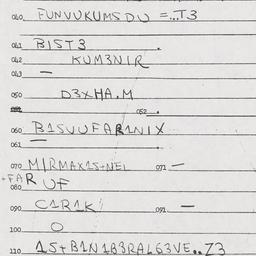 040 FUNVUKUMSDU =...T3
041 BIST3 .
042 KUM3NIR
043 —
050 D3xHA.M
052 .
060 B1SVUFAR1NIX
061 — .
070 MIRMAX1S+NEL 071 —
+FAR UF
080
090 C1R1K 091 —
100 O
110 1S+B1N1B3RAL63VE..Z3